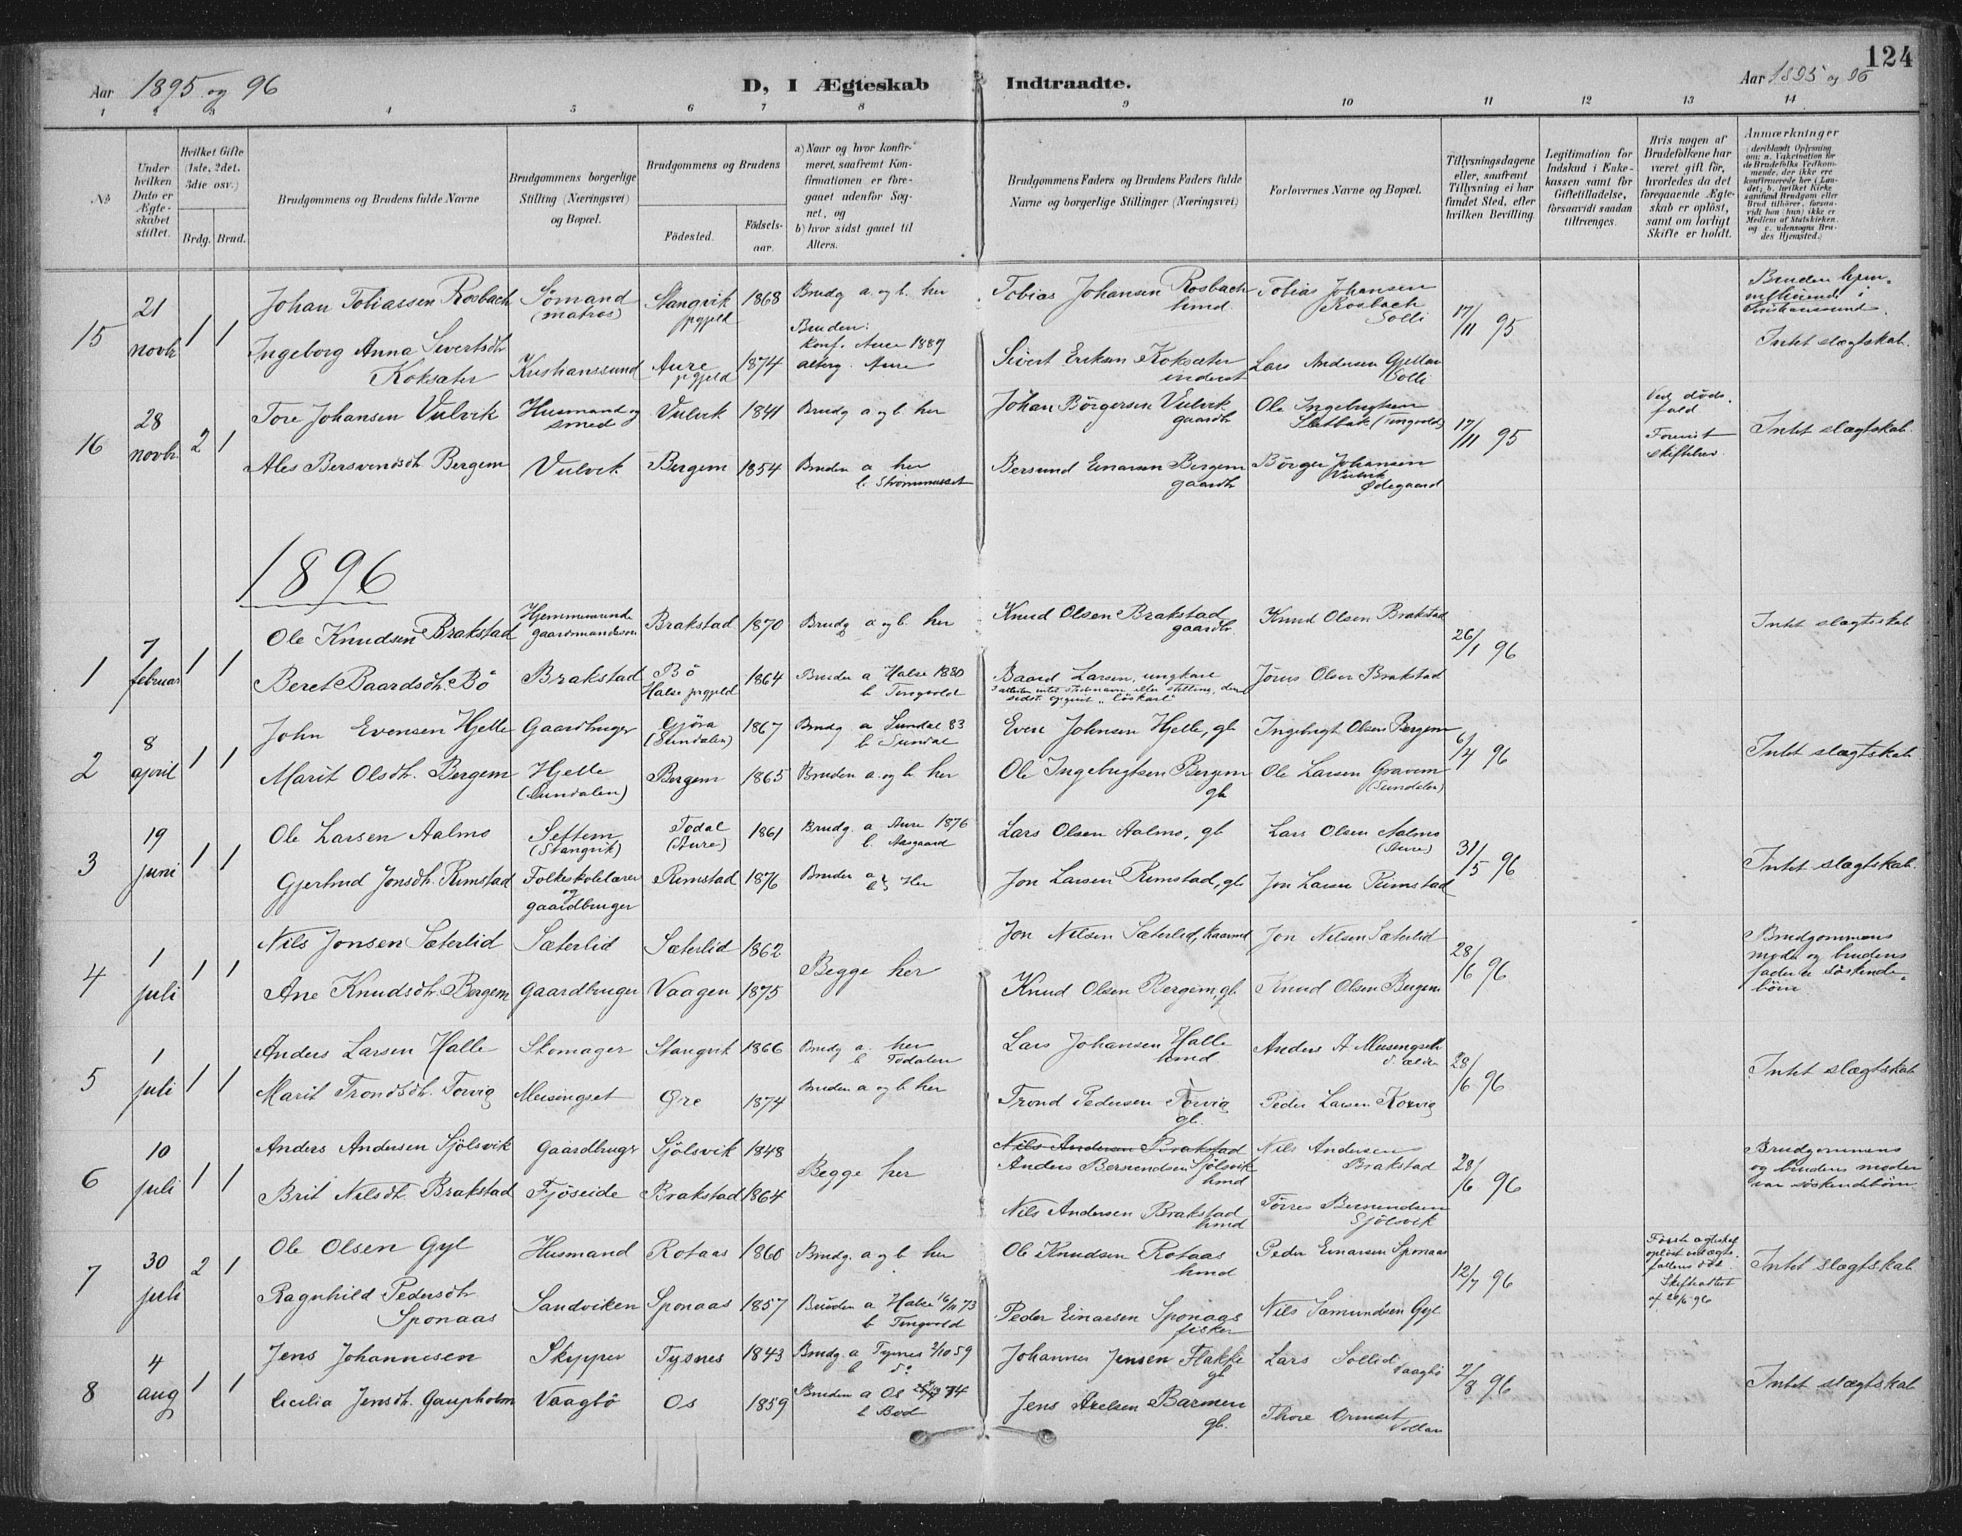 124
Aar 1895 og 96
D, I Ægteskab Indtraadte.
Aar 1895 og 96
1 2 3 4 5 6 7 8 9 10 11 12 13 14
№
Under hvilken Dato er Ægteskabet stiftet.
Hvilket Gifte (1ste, 2det. 3die osv.)
Brdg. Brud.
Brudgommens og Brudens fulde Navne
Brudgommens borgerlige Stilling (Næringsvei) og Bopæl.
Brudgommens og Brudens
Fødested.
Fødselsaar.
a) Naar og hvor konfirmeret, saafremt Konfirmationen er foregaaet udenfor Sognet, og
b) hvor sidst gaaet til Alters.
Brudgommens Faders og Brudens Faders fulde Navne og borgerlige Stillinger (Næringsvei)
Forlovernes Navne og Bopæl.
Tillysningsdagene eller, saafremt Tillysning ei har fundet Sted, efter hvilken Bevilling.
Legitimation for Indskud i Enkekassen samt for Giftetilladelse, forsaavidt saadan tiltrænges.
Hvis nogen af Brudefolkene har været gift før, hvorledes da det foregaaende Ægteskab er opløst, samt om lovligt Skifte er holdt.
Anmærkninger
(deriblandt Oplysning om: a. Vakcination for de Brudefolks Vedkommende, der ikke ere konfirmerede her i Landet; b. hvilket Kirkesamfund Brudgom eller Brud tilhører, forsaavidt han (hun) ikke er Medlem af Statskirken, og c. udensogns Brudes Hjemsted.)
15 21 novbr 1 1
Johan Tobiassen Rosbach Sömand (matros) Stangvik prgjeld 1868 Brudg a. og b. her Tobias Johansen Rosbach husmd. Tobias Johansen Rosbach Solli 17/11 95
Bruden hjemmehörende i Kristiansund.
Ingeborg Anna Sivertsdtr Koksæter Kristianssund Aure prgjeld 1874 Bruden: konf. Aure 1889 alterg. Aure Sivert Eriksen Koksæter inderst Lars Andersen Gjeltan Solli
Intet slægtskab.
16 28 novbr. 2 1
Tore Johansen Vulvik Husmand og smed Vulvik 1841 Brudg a og b. her Johan Börgersen Vulvik gaardbr Ole Ingebrigtsen Sletbak (Tingvold) 17/11 95 Ved dödsfald
Intet slægtskab.
Ales Bersvendsdtr Bergem Vulvik Bergem 1854 Bruden a her b. Strömmeset Bersvend Einarsen Bergem gaardbr Börger Johansen Vulvik Ødegaard
1896
1 7 februar 1 1
Ole Knudsen Brakstad Hjemmeværende gaardmandssön Brakstad 1870 Brudg a og b. her Knud Olsen Brakstad gaardbr. Knud Olsen Brakstad 26/1 96 Intet slægtskab
Beret Baardsdtr. Bö Brakstad Bö Halse prgjeld 1864 Bruden a Halse 1880 b Tingvold Baard Larsen, ungkarl Jörus Olsen Brakstad
2 8 april 1 1
John Evensen Hjelle Gaardbruger Gjöra (Sundalen) 1867 Brudg a Sundal 83 b Sundal Even Johnsen Hjelle, gb Ingebrigt Olsen Bergem 6/4 96 Intet slægtskab.
Marit Olsdtr. Bergem Hjelle (Sundalen) Bergem 1865 Bruden a. og b. her Ole Ingebrigtsen Bergem gb Ole Larsen Gravem (Sundalen)
3 19 juni 1 1
Ole Larsen Aalmo Settem (Stangvik) Todal (Aure) 1861 Brudg. a Aure 1876 b. Aasgaard Lars Olsen Aalmo, gb Lars Olsen Aalmo (Aure) 31/5 96 Intet slægtskab.
Gjertrud Jonsdtr. Rimstad Folkeskolelærer og gaardbruger Rimstad 1876 Bruden a b Her Jon Larsen Rimstad, gb Jon Larsen Rimstad
4 1 juli 1 1
Nils Jonsen Sæterlid Sæterlid Sæterlid 1862 Begge her Jon Nilsen Sæterlid, kaarmd Jon Nilsen Sæterlid 28/6 96 Brudgommens moder og brudens fader er söskendebörn.
Ane Knudsdtr. Bergem Gaardbruger Vaagen 1875 Knud Olsen Bergem, gb. Knud Olsen Bergem
5 1 juli 1 1
Anders Larsen Halle Skomager Stangvik 1866 Brudg a. her b Todalen Lars Johansen Halle husmd Anders A Meisingseth d. ældre 28/6 96 Intet slægtskab
Marit Trondsdtr. Torvig Meisingset Øre 1874 Bruden a og b her Trond Pedersen Torvig gb. Peder Larsen Korvig
6 10 juli 1 1
Anders Andersen Sjölsvik Gaardbruger Sjölsvik 1848 Begge her Nils Andersen Brakstad Anders Bersvendsen Sjölsvik husmd Nils Andersen Brakstad 28/6 96 Brudgommens og brudens moder var söskendebörn
Brit Nilsdtr Brakstad Fjöseide Brakstad 1864 Nils Andersen Brakstad husmd Törres Bersvendsen Sjölsvik
7 30 juli 2 1
Ole Olsen Gyl Husmand Rotaas 1860 Brudg. a og b her Ole Knudsen Rotaas husmd Peder Einarsen Sponaas 12/7 96 Förste ægteskab oplöst ved ægtefællens död. Skifteattest af 20/6 96 Intet slægtskab
Ragnhild Pedersdtr Sponaas Sandviken Sponaas 1857 Bruden a Halse 16/11 73 b Tingvold Peder Einarsen Sponaas fisker Nils Samundsen Gyl
8 4 aug 1 1
Jens Johannesen Skypper Tysnes 1843 Brudg. a Tysnes 2/10 59 b do Johannes Jensen Flakke gb Lars Sollid Vaagbö 2/8 96 Intet slægtskab
Cicilia Jensdtr. Gaupholm Vaagbö Os 1859 Bruden a Os 74 b Bod Jens Axelsen Barmen gb. Thore Ormset Vollan